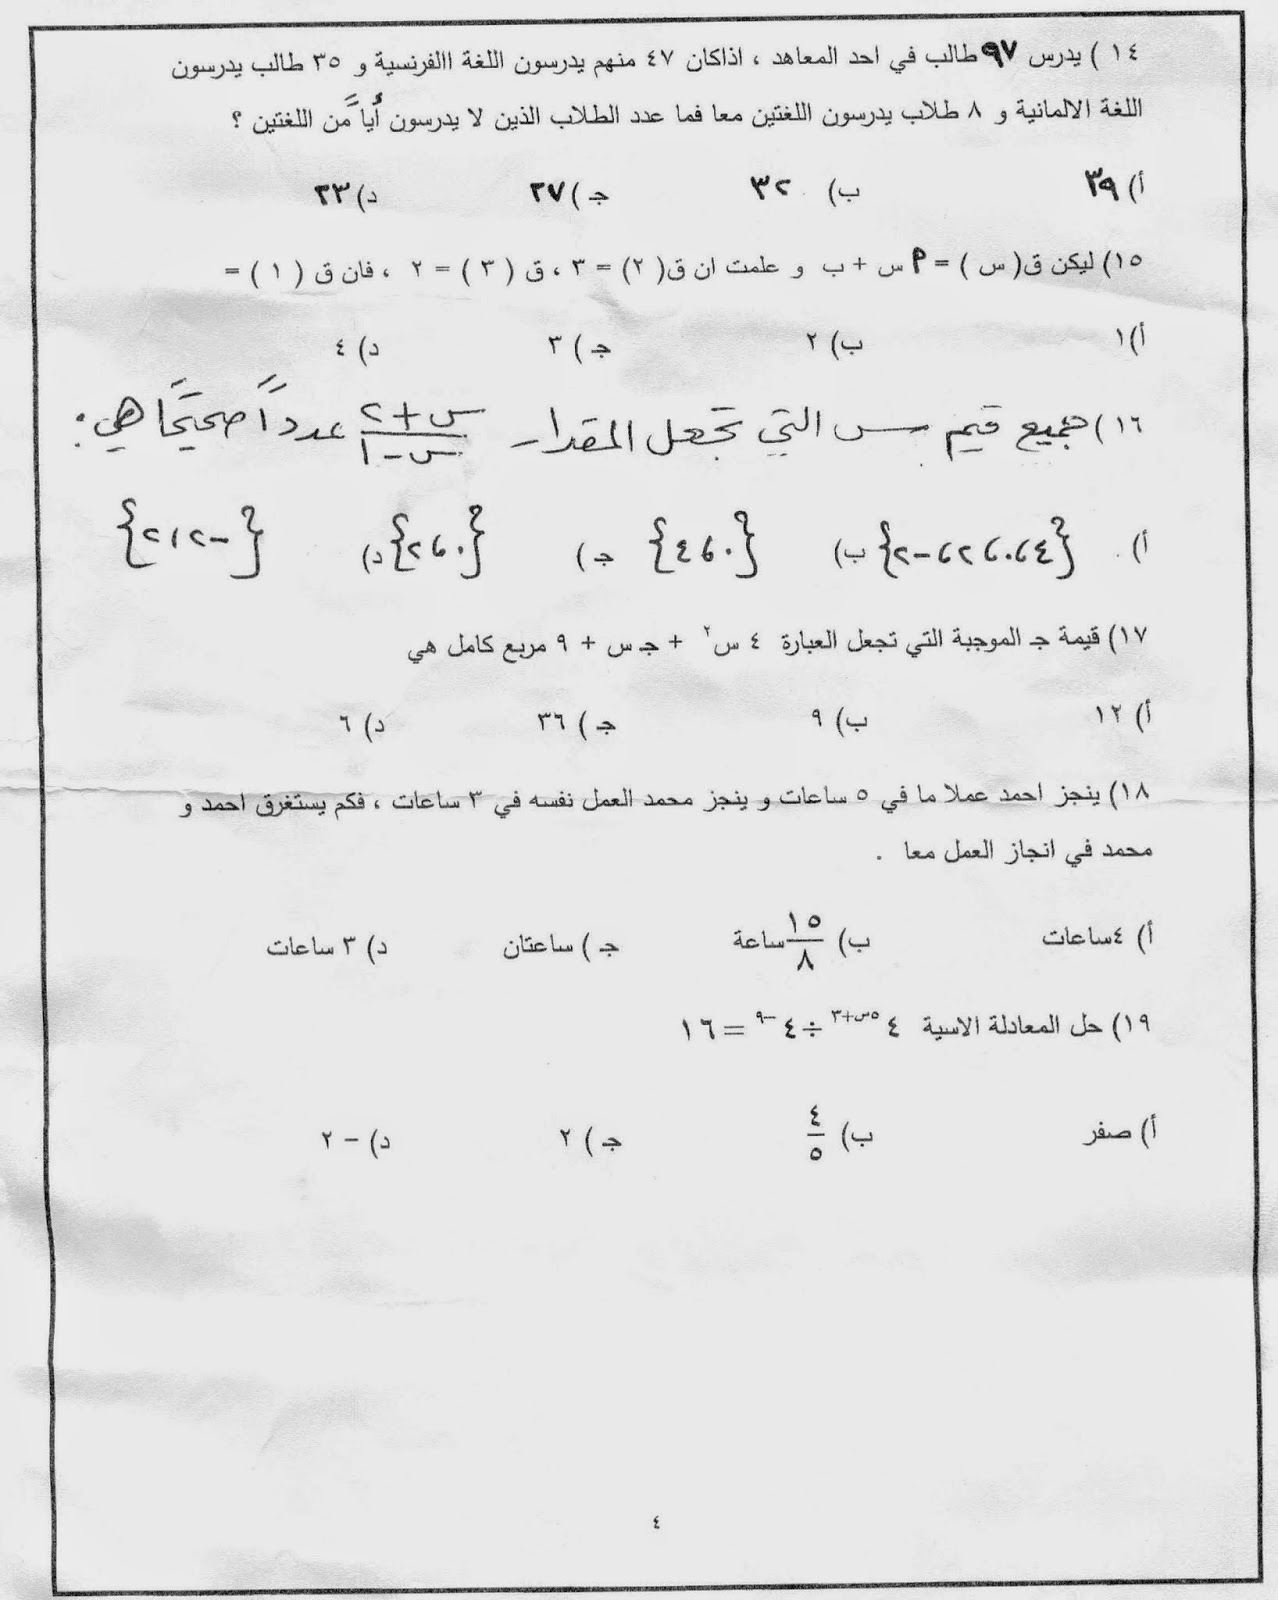 ١٤ ) يدرس ٩٧ طالب في احد المعاهد ، اذاكان ٤٧ منهم يدرسون اللغة االفرنسية و ٣٥ طالب يدرسون
اللغة الالمانية و ٨ طلاب يدرسون اللغتين معا فما عدد الطلاب الذين لا يدرسون أياً من اللغتين ؟
أ) ٣٩ ب) ٣٢ جـ ) ٢٧ د) ٢٣
١٥) ليكن ق( س ) = ٩ س + ب و علمت ان ق( ٢) = ٣ ، ق ( ٣ ) = ٢ ، فان ق ( ١ ) =
أ)١ ب) ٢ جـ ) ٣ د) ٤
١٦) جميع قيم س التي تجعل المقدار س+٢ / س-١ عدداً صحيحًا هي :
أ) {٤،٠،٢،-٢} ب) {٠،٤} جـ ) {٠،٢} د) {-٢،٢}
١٧) قيمة جـ الموجبة التي تجعل العبارة ٤ س٢ + جـ س + ٩ مربع كامل هي
أ) ١٢ ب) ٩ جـ ) ٣٦ د) ٦
١٨) ينجز احمد عملا ما في ٥ ساعات و ينجز محمد العمل نفسه في ٣ ساعات ، فكم يستغرق احمد و
محمد في انجاز العمل معا .
أ) ٤ساعات ب) ١٥/٨ ساعة جـ ) ساعتان د) ٣ ساعات
١٩) حل المعادلة الاسية ٤ ٥س+٣ ÷ ٤ -٩ = ١٦
أ) صفر ب) ٤/٥ جـ ) ٢ د) - ٢
٤